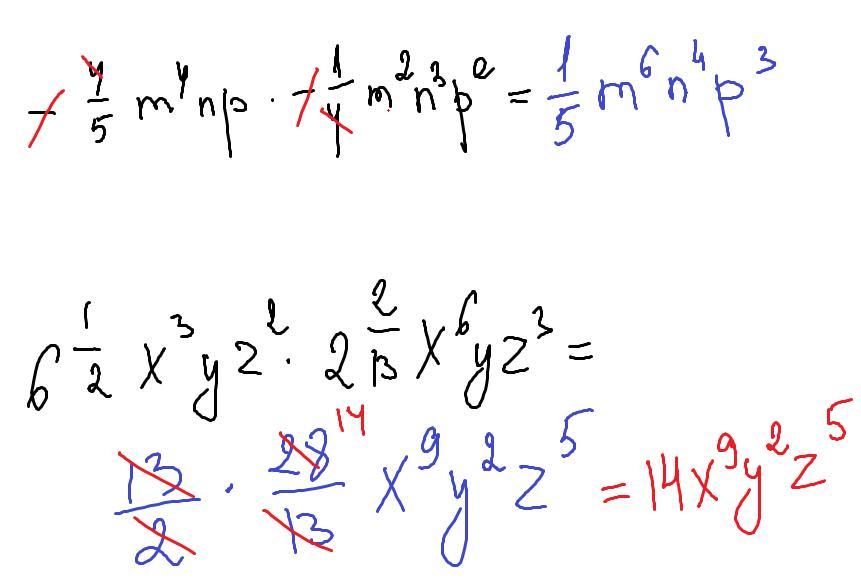 - 4/5 m⁴np · - 1/4 m²n³p² = 1/5 m⁶n⁴p³
6 1/2 x³yz² · 2 2/13 x⁶yz³ =
13/2 · 28/13 14 x⁹y²z⁵ = 14x⁹y²z⁵